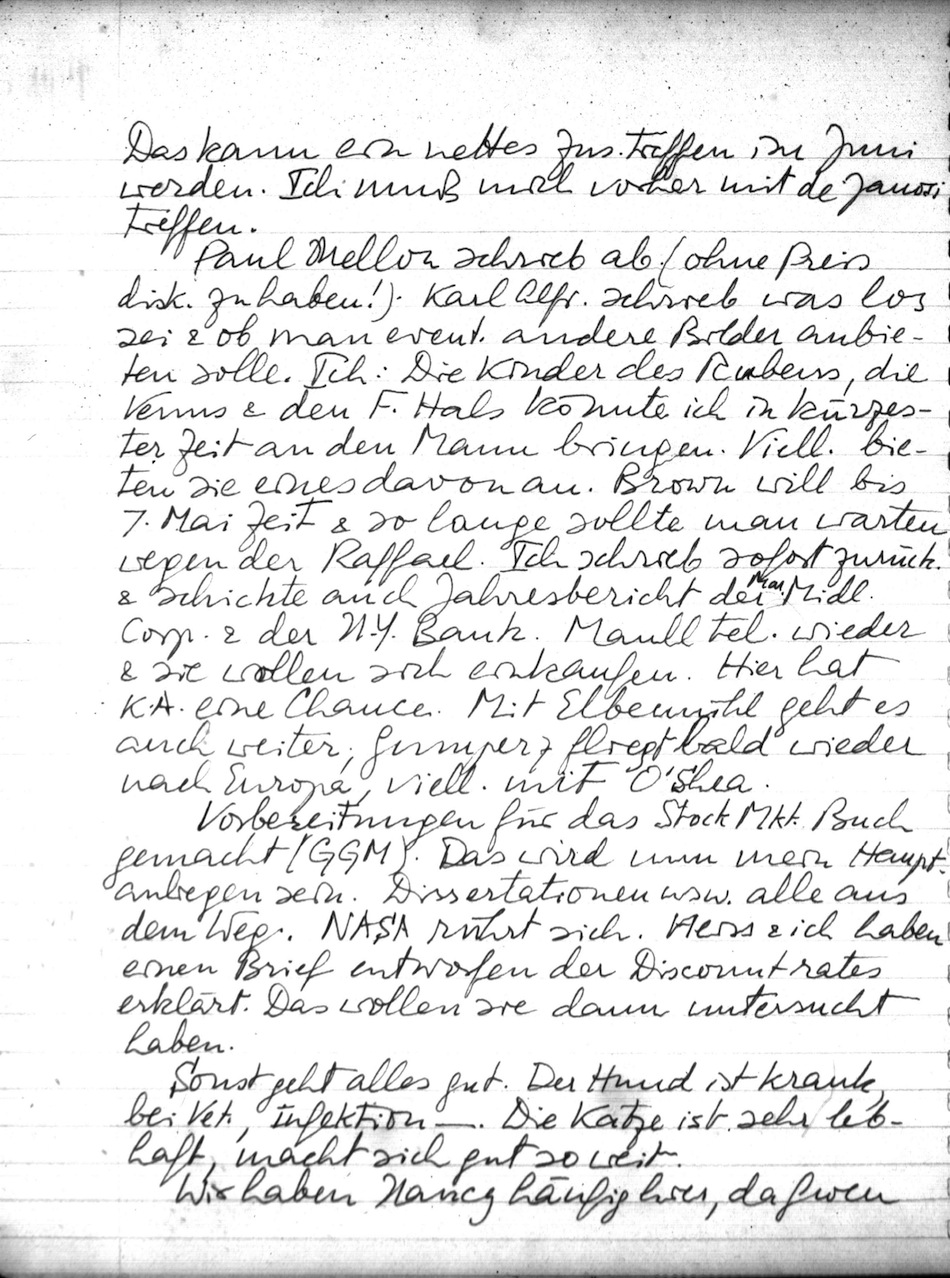 Das kann ein nettes Zus.treffen im Juni
werden. Ich muß mich vorher mit de Janosi
treffen.
Paul Mellon schrieb ab. (ohne Preis
disk. zu haben!). Karl Alfr. schrieb was los
sei & ob man event. andere Bilder anbie-
ten solle. Ich: Die Kinder des Rubens, die
Venus & den F. Hals könnte ich in kürzes-
ter Zeit an den Mann bringen. Viell. bie-
ten sie eines davon an. Brown will bis
7. Mai Zeit & so lange sollte man warten
wegen der Raffael. Ich schrieb sofort zurück.
& schickte auch Jahresbericht der Mar. Midl.
Corp. & der N.Y. Bank. Maull tel. wieder
& sie wollen sich einkaufen. Hier hat
K.A. eine Chance. Mit Elbemühl geht es
auch weiter, Gumperz fliegt bald wieder
nach Europa, viell. mit O'Shea.
Vorbereitungen für das Stock Mkt. Buch
gemacht (GGM). Das wird nun mein Haupt-
anliegen sein. Dissertationen usw. alle aus
dem Weg. NASA rührt sich. Heiss & ich haben
einen Brief entworfen der Discount rates
erklärt. Das wollen sie dann untersucht
haben.
Sonst geht alles gut. Der Hund ist krank,
bei Vet., Infektion —. Die Katze ist sehr leb-
haft, macht sich gut so weit.
Wir haben Nancy häufig hier, da Gwen